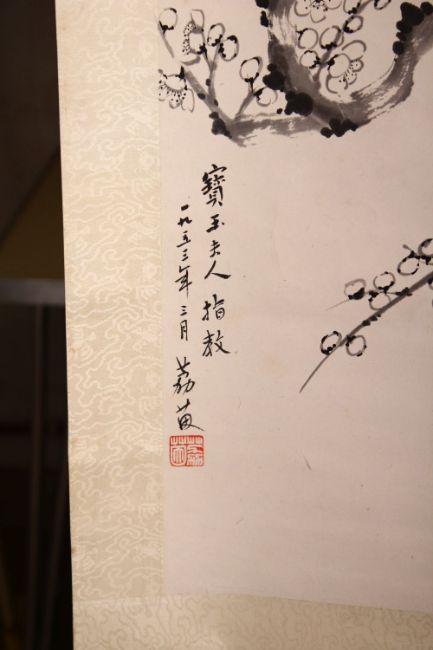 寶玉夫人指教
一九五三年三月 荔茵